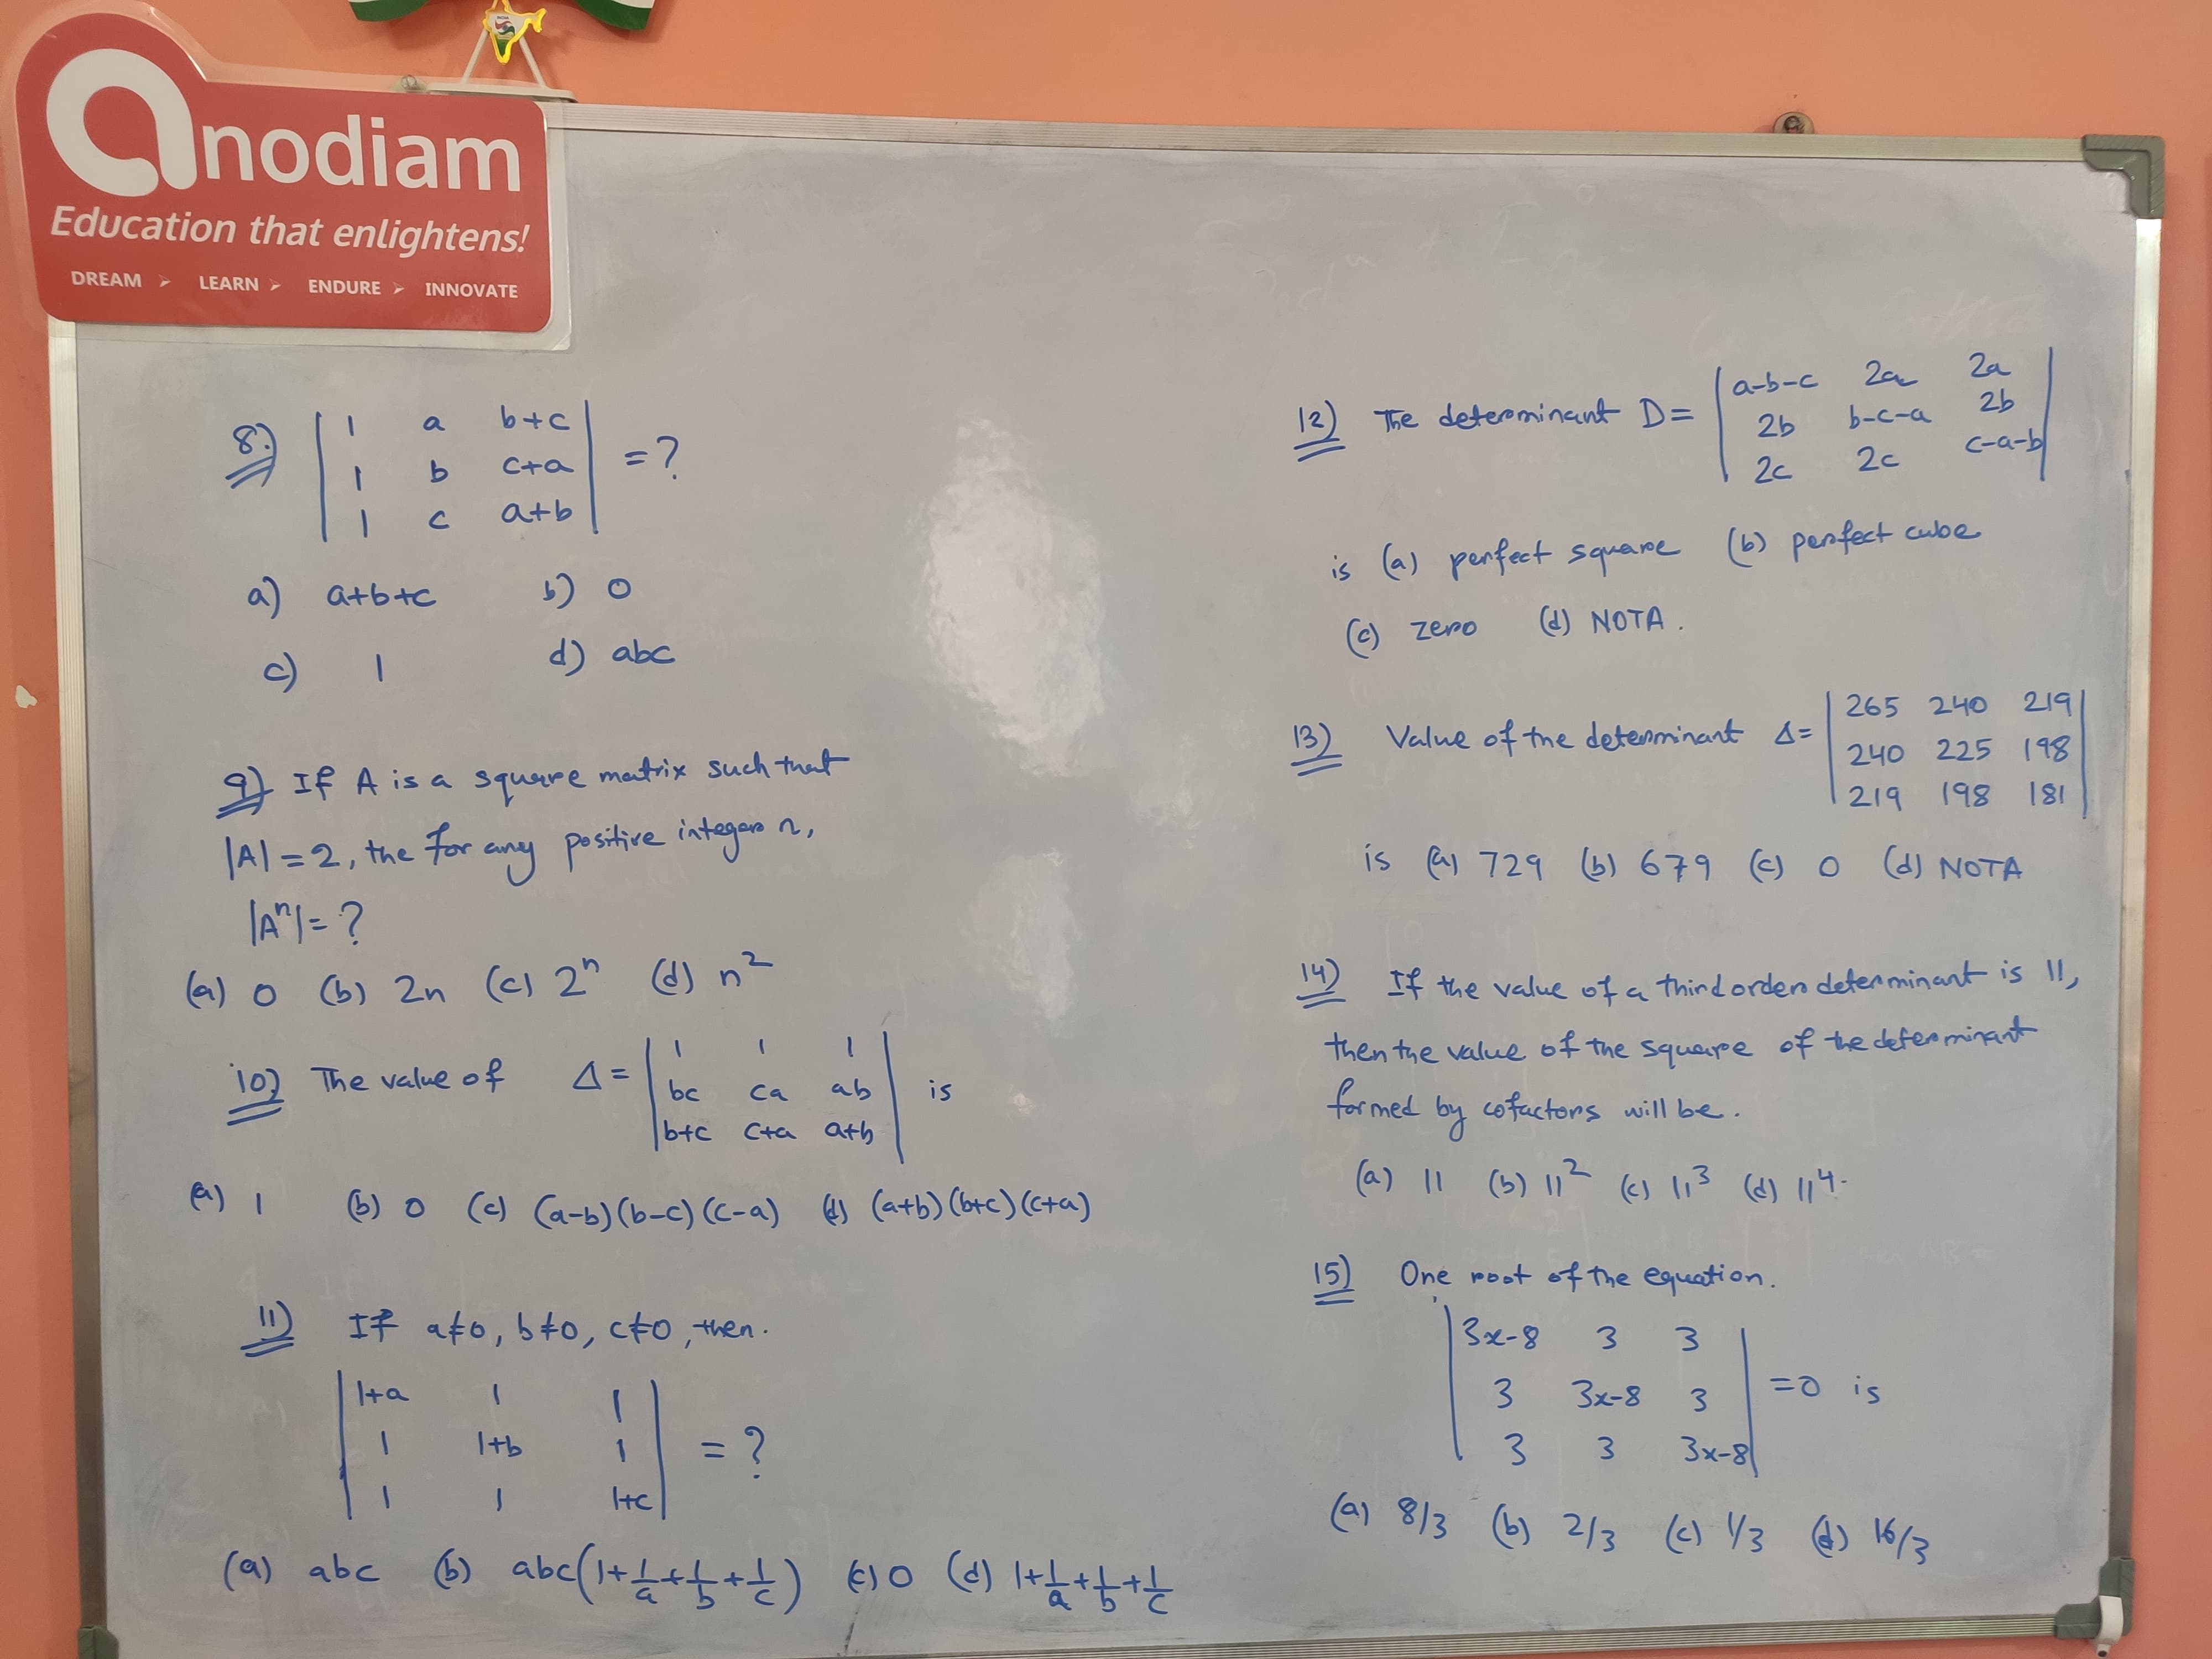 anodiam
Education that enlightens!
DREAM > LEARN > ENDURE > INNOVATE
8.) | 1 a b+c |
| 1 b c+a | = ?
| 1 c a+b |
a) a+b+c b) 0
c) 1 d) abc
9) If A is a square matrix such that
|A| = 2, the for any positive integer n,
|Aⁿ| = ?
(a) 0 (b) 2n (c) 2ⁿ (d) n²
10) The value of Δ = | 1 1 1 |
| bc ca ab | is
| b+c c+a a+b |
(a) 1 (b) 0 (c) (a-b)(b-c)(c-a) (d) (a+b)(b+c)(c+a)
11) If a≠0, b≠0, c≠0, then.
| 1+a 1 1 |
| 1 1+b 1 | = ?
| 1 1 1+c |
(a) abc (b) abc(1+1/a+1/b+1/c) (c) 0 (d) 1+1/a+1/b+1/c
12) The determinant D = | a-b-c 2a 2a |
| 2b b-c-a 2b |
| 2c 2c c-a-b |
is (a) perfect square (b) perfect cube
(c) zero (d) NOTA.
13) Value of the determinant Δ = | 265 240 219 |
| 240 225 198 |
| 219 198 181 |
is (a) 729 (b) 679 (c) 0 (d) NOTA
14) If the value of a third order determinant is 11,
then the value of the square of the determinant
formed by cofactors will be.
(a) 11 (b) 11² (c) 11³ (d) 11⁴.
15) One root of the equation.
| 3x-8 3 3 |
| 3 3x-8 3 | = 0 is
| 3 3 3x-8 |
(a) 8/3 (b) 2/3 (c) 1/3 (d) 16/3